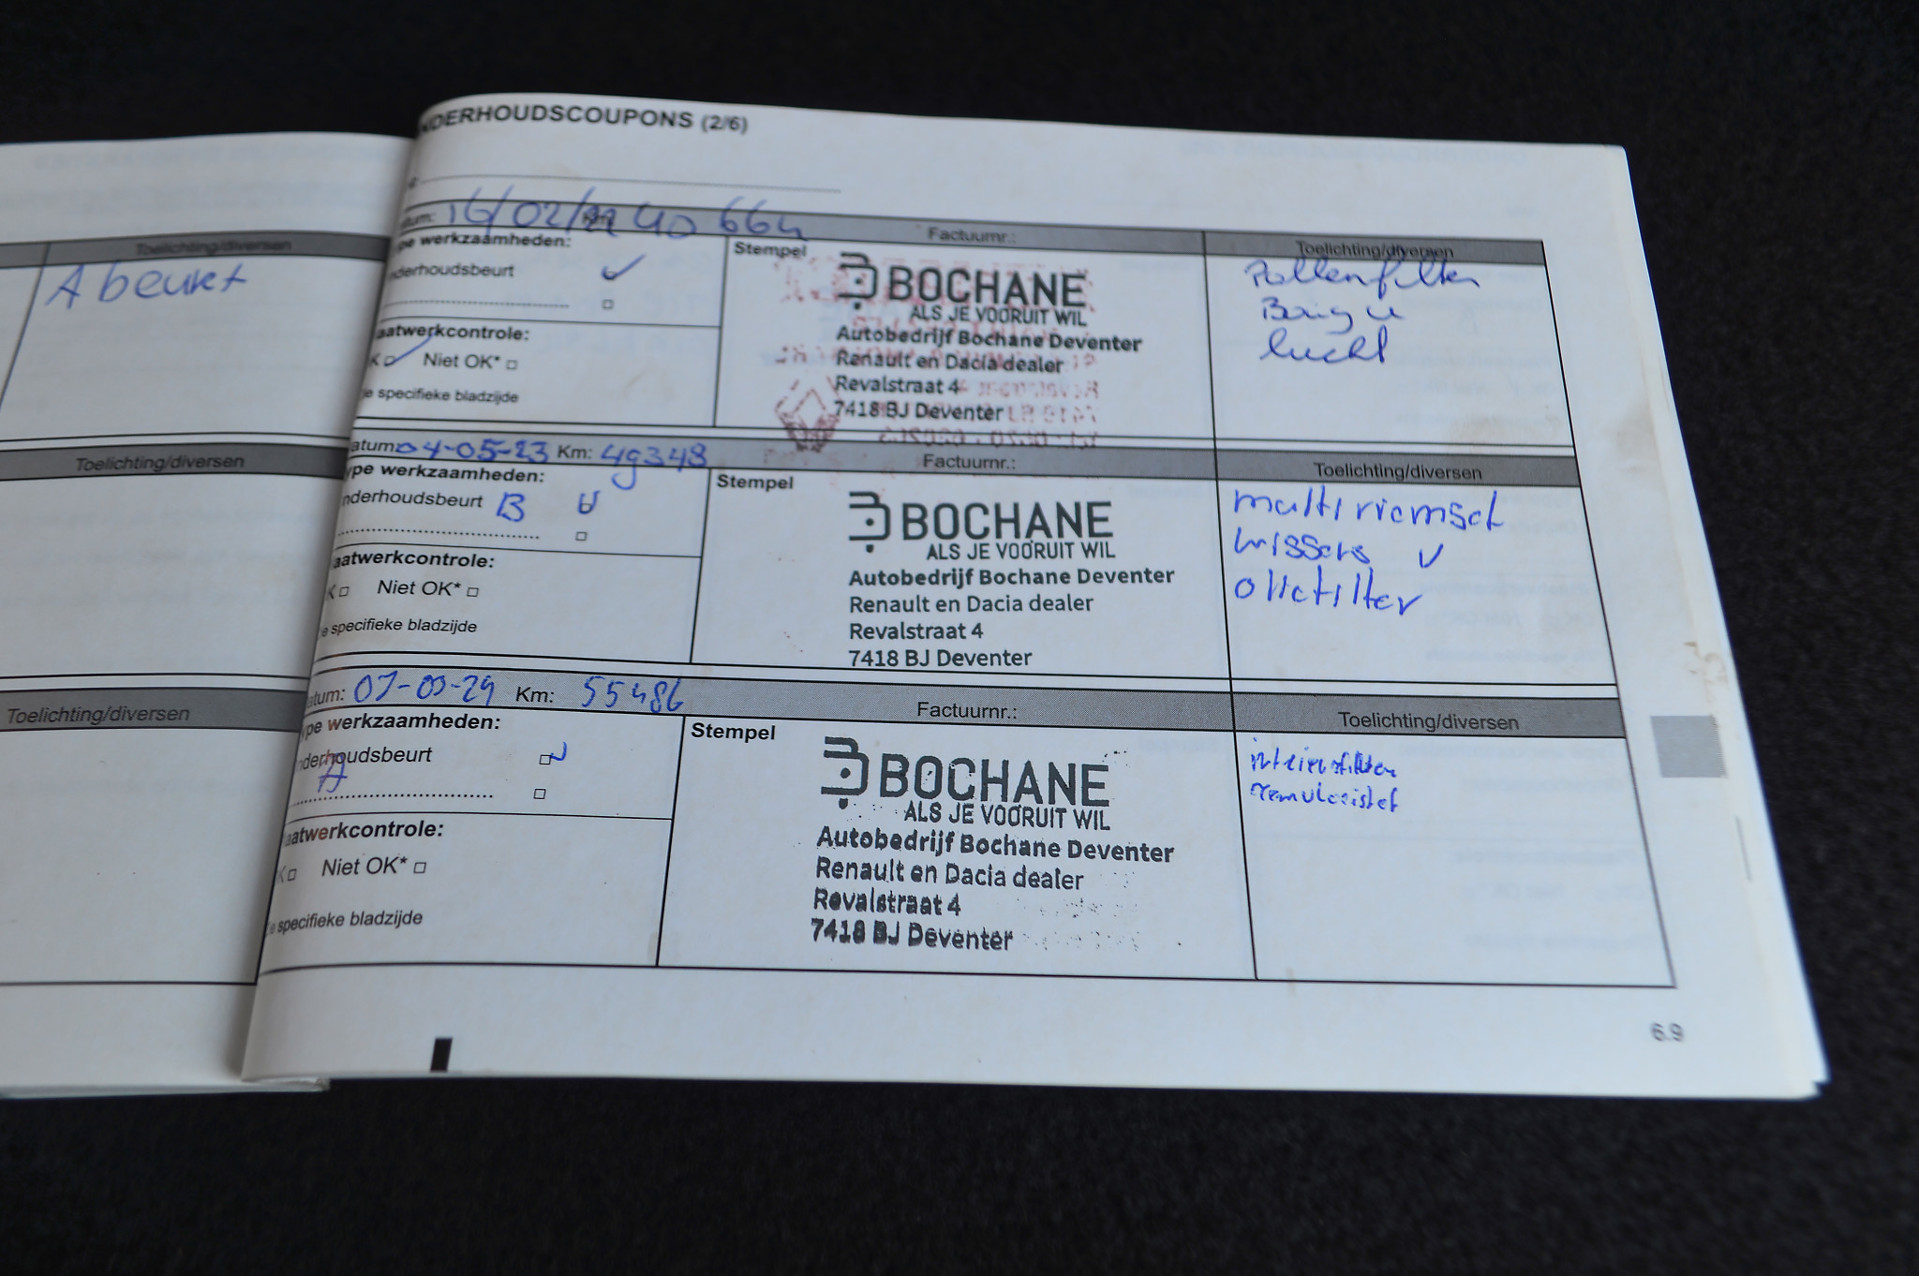 Toelichting/diversen
A beurt
Toelichting/diversen
Toelichting/diversen
NDERHOUDSCOUPONS (2/6)
tum: 16/02/22 40 664 Factuurnr.: Toelichting/diversen
pe werkzaamheden: Stempel
nderhoudsbeurt
aatwerkcontrole:
K Niet OK*
e specifieke bladzijde
BOCHANE
ALS JE VOORUIT WIL
Autobedrijf Bochane Deventer
Renault en Dacia dealer
Revalstraat 4
7418 BJ Deventer
Pollenfilter
Bougie
lucht
atum: 04-05-23 Km: 49348 Factuurnr.: Toelichting/diversen
ype werkzaamheden: Stempel
nderhoudsbeurt B
aatwerkcontrole:
K Niet OK*
e specifieke bladzijde
BOCHANE
ALS JE VOORUIT WIL
Autobedrijf Bochane Deventer
Renault en Dacia dealer
Revalstraat 4
7418 BJ Deventer
multiriemset
wissers
oliefilter
atum: 07-03-24 Km: 55486 Factuurnr.: Toelichting/diversen
ype werkzaamheden: Stempel
nderhoudsbeurt
A
aatwerkcontrole:
K Niet OK*
e specifieke bladzijde
BOCHANE
ALS JE VOORUIT WIL
Autobedrijf Bochane Deventer
Renault en Dacia dealer
Revalstraat 4
7418 BJ Deventer
interieurfilter
remvloeistof
6.9